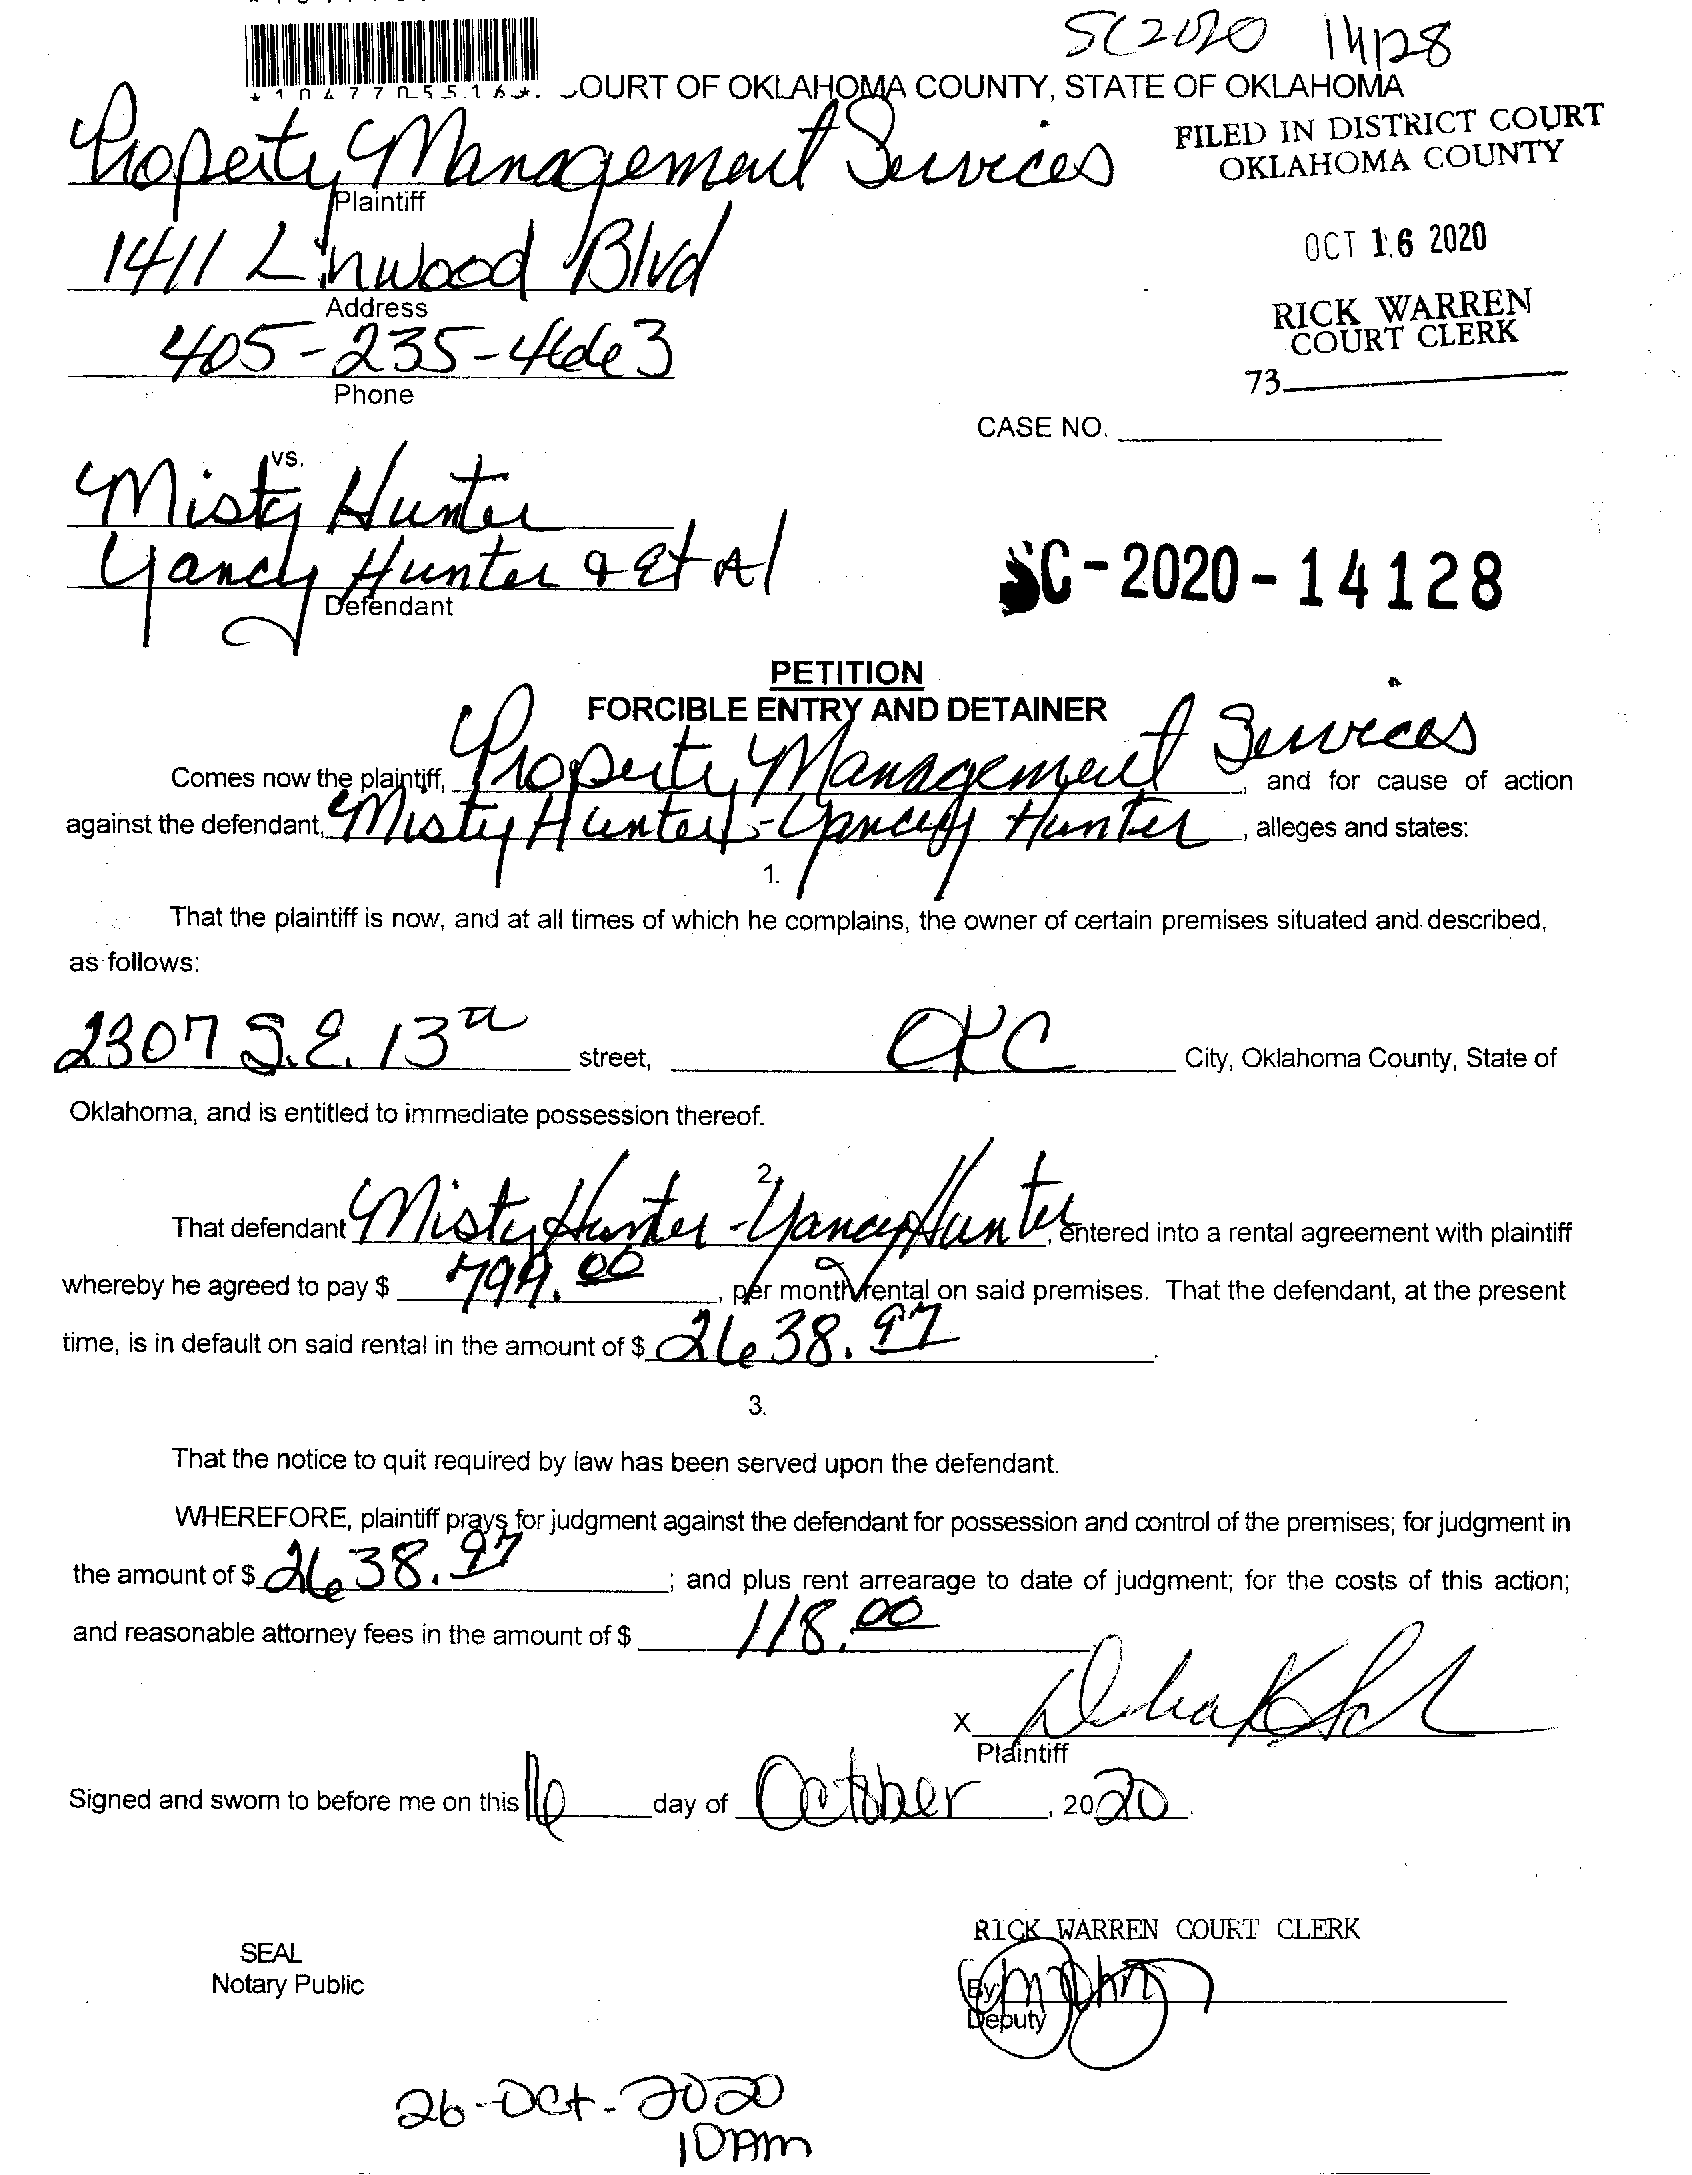 SC2020 14128
*1047705516*
COURT OF OKLAHOMA COUNTY, STATE OF OKLAHOMA
FILED IN DISTRICT COURT
OKLAHOMA COUNTY
Property Management Services
Plaintiff
OCT 16 2020
1411 Linwood Blvd
Address
RICK WARREN
COURT CLERK
405-235-4663
Phone
73
CASE NO.
vs.
Misty Hunter
Yancy Hunter & Et Al
Defendant
SC-2020-14128
PETITION
FORCIBLE ENTRY AND DETAINER
Comes now the plaintiff, Property Management Services, and for cause of action
against the defendant, Misty Hunter - Yancey Hunter, alleges and states:
1.
That the plaintiff is now, and at all times of which he complains, the owner of certain premises situated and described,
as follows:
2307 S.E. 13th street, OKC City, Oklahoma County, State of
Oklahoma, and is entitled to immediate possession thereof.
2.
That defendant Misty Hunter - Yancy Hunter, entered into a rental agreement with plaintiff
whereby he agreed to pay $ .00, per month rental on said premises. That the defendant, at the present
time, is in default on said rental in the amount of $ 2638.97.
3.
That the notice to quit required by law has been served upon the defendant.
WHEREFORE, plaintiff prays for judgment against the defendant for possession and control of the premises; for judgment in
the amount of $ 2638.97; and plus rent arrearage to date of judgment; for the costs of this action;
and reasonable attorney fees in the amount of $ 118.00
x
Plaintiff
Signed and sworn to before me on this 16 day of October, 2020.
RICK WARREN COURT CLERK
SEAL
Notary Public
By
Deputy
26-Oct-2020
10AM